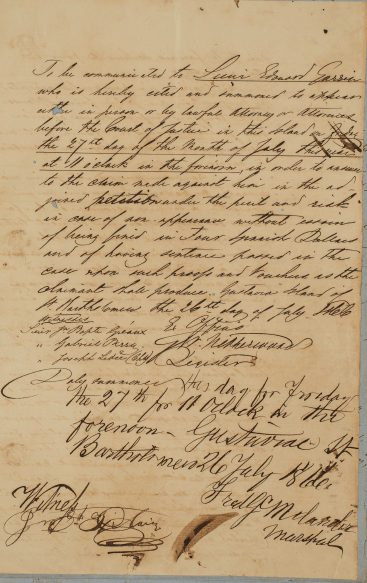 To be communicated to Sieur Edouard
who is hereby cited and summoned to appear
either in person or by lawful Attorney or Attornies
before the Court of Justice in this Island on Friday
the 27th day of the Month of July this year
at 11 o'clock in the forenoon, in order to answer
to the claim made against him in the ad
joined petition under the peril and risk
in case of non appearance without
of being fined in Four Spanish Dollars
and of having sentence passed in the
case upon such proofs and Vouchers as the
claimant shall produce. Gustavia Island of
St. Bartholomew the 26th day of July
Ex Officio
Witnesses
Sieur Jn Bapte
" Gabriel
" Joseph
Duly summoned this day for Friday
the 27th for 11 Oclock in the
forenoon Gustavia St
Bartholomew 26 July
Witness
Marshal